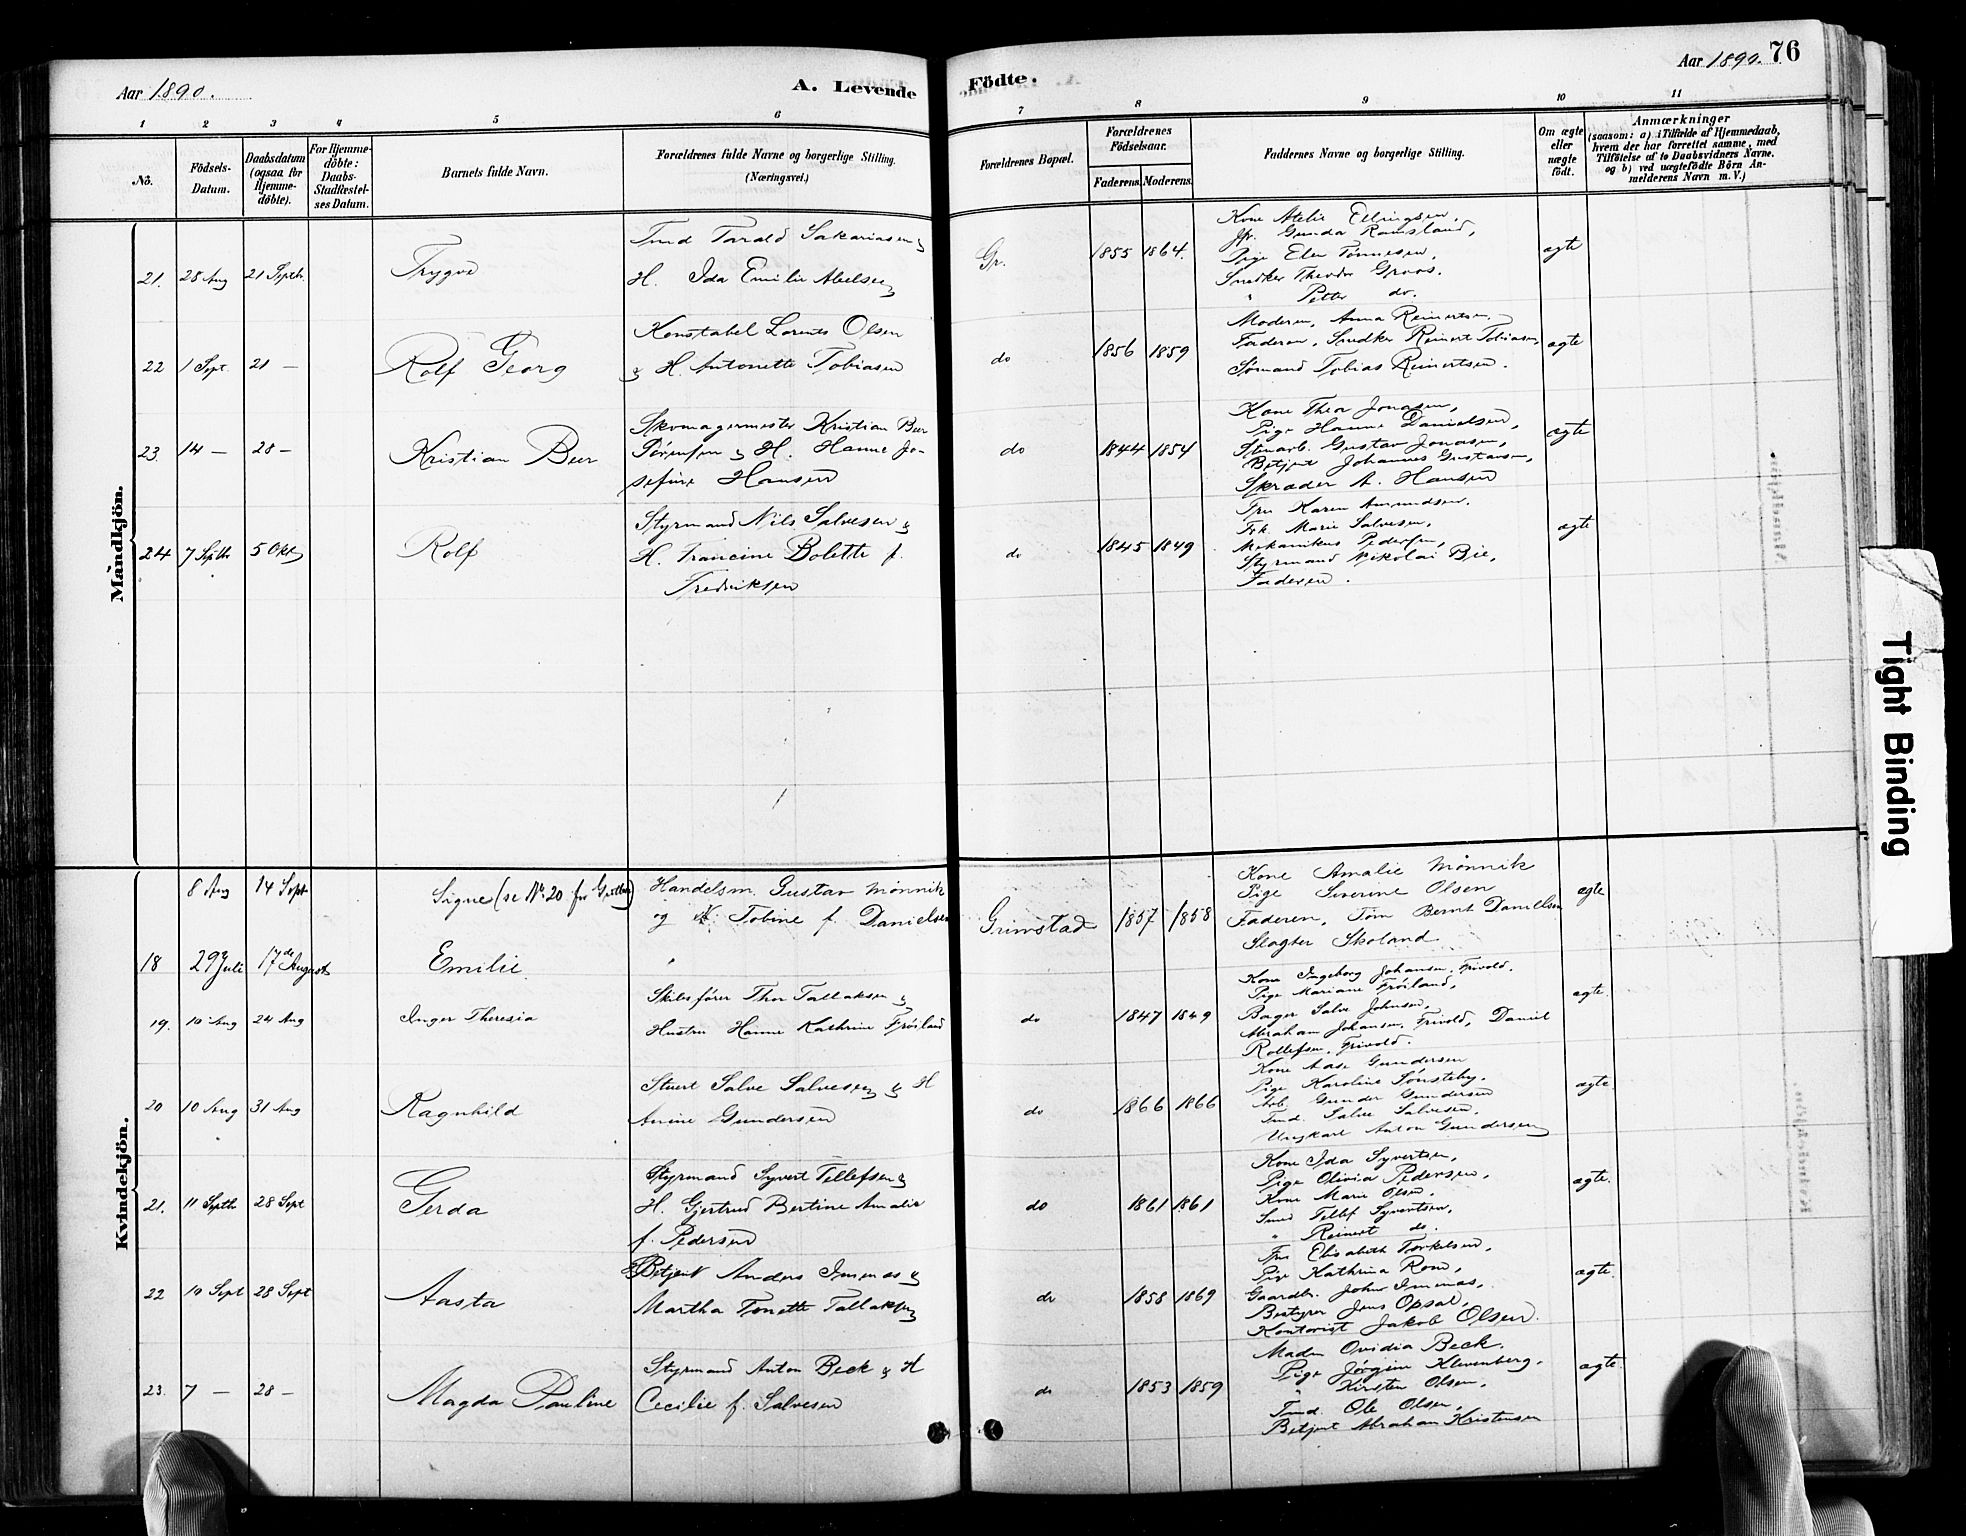 Aar 1890.
A. Levende Födte.
Aar 1890. 76
1 2 3 4 5 6 7 8 9 10 11
No.
Födsels-Datum.
Daabsdatum (ogsaa for Hjemme-döbte).
For Hjemme-döbte: Daabs-Stadfestel-ses Datum.
Barnets fulde Navn.
Forældrenes fulde Navne og borgerlige Stilling. (Næringsvei.)
Forældrenes Bopæl.
Forældrenes Födselsaar.
Faderens. Moderens.
Faddernes Navne og borgerlige Stilling.
Om ægte eller uægte födt.
Anmærkninger
(saasom: a) i Tilfælde af Hjemmedaab,
hvem der har forrettet samme, med
Tilföielse af to Daabsvidners Navne,
og b) ved uægtefödte Börn An-
melderens Navn m. V.)
Mandkjön.
21. 28 Aug 21 Septb. Trygve
Tmd Tarald Sakariasen &
H. Ida Emilie Abelsen
Gr. 1855 1864
Kone Atelie Ellingsen,
Jfr. Gunda Ramsland,
Pige Elen Tønnesen,
Snedker Theodor Groos.
" Petter do.
ægte
22 1 Sept. 21 – Rolf Georg
Konstabel Lorents Olsen
& H. Antonette Tobiasen
do 1856 1859
Moderen, Anna Reinertsen,
Faderen, Snedker Reinert Tobiasen,
Sømand Tobias Reinertsen.
ægte
23. 14 – 28 – Kristian Beer
Skomagermester Kristian Beer
Sørensen & H. Hanne Jo-
sefine Hansen
do 1844 1854
Kone Thea Jonasen,
Pige Hanne Danielsen,
Stenarb. Gustav Jonasen,
Betjent Johannes Gustavsen,
Skræder A. Hansen
ægte
24 7 Septb 5 Okt Rolf
Styrmand Nils Salvesen &
H. Francine Bolette f.
Fredriksen
do 1845 1849
Fru Karen Amundsen.
Frk Marie Salvesen,
Mekanikus Pedersen,
Styrmand Nikolai Bie,
Faderen.
ægte
Kvindekjön.
8 Aug 14 Sept Signe (se No. 20 for Gutter)
Handelsm. Gustav Mönnik
og H. Tobine f. Danielsen
Grimstad 1857 1858
Kone Amalie Mönnik
Pige Severine Olsen
Faderen, Töm Bernt Danielsen
Slagter Skoland
ægte
18 29 Juli 17de August Emilie "
19. 10 Aug 24 Aug Inger Theresia
Skibsfører Thor Tallaksen &
Hustru Hanne Kathrine Frøiland
do 1847 1849
Kone Ingeborg Johansen, Frivold.
Pige Mariane Frøiland,
Bager Salve Johnsen,
Abraham Johansen, Frivold, Daniel
Rollefsen, Frivold.
ægte.
20 10 Aug 31 Aug Ragnhild
Stuert Salve Salvesen & H
Anine Gundersen
do 1866 1866
Kone Aase Gundersen
Pige Karoline Sønsteby.
Arb. Gunder Gundersen
Tmd. Salve Salvesen.
Ungkarl Anton Gundersen
ægte.
21. 11 Septb 28 Sept Gerda
Styrmand Syvert Tellefsen &
H. Gjertrud Bertine Amalie
f. Pedersen
do 1861 1861
Kone Ida Syvertsen,
Pige Olivia Pedersen,
Kone Marie Olsen,
Smed Tellef Syvertsen,
" Reinert do.
ægte.
22 10 Sept 28 Sept Aasta
Betjent Anders Imenæs &
Martha Tonette Tallaksen
do 1858 1869
Fru Elisabeth Torkelsen,
Pige Kathrina Rom,
Gaardbr. John Imenæs,
Bestyrer Jens Opsal,
Kontorist Jakob Olsen.
ægte.
23. 7 – 28 – Magda Pauline
Styrmand Anton Beck & H
Cecilie f. Salvesen
do 1853 1859
Madm Ovidia Beck.
Pige Jørgine Klevenberg.
" Kirsten Olsen,
Tmd. Ole Olsen,
Betjent Abraham Kristensen
ægte.
Tight Binding